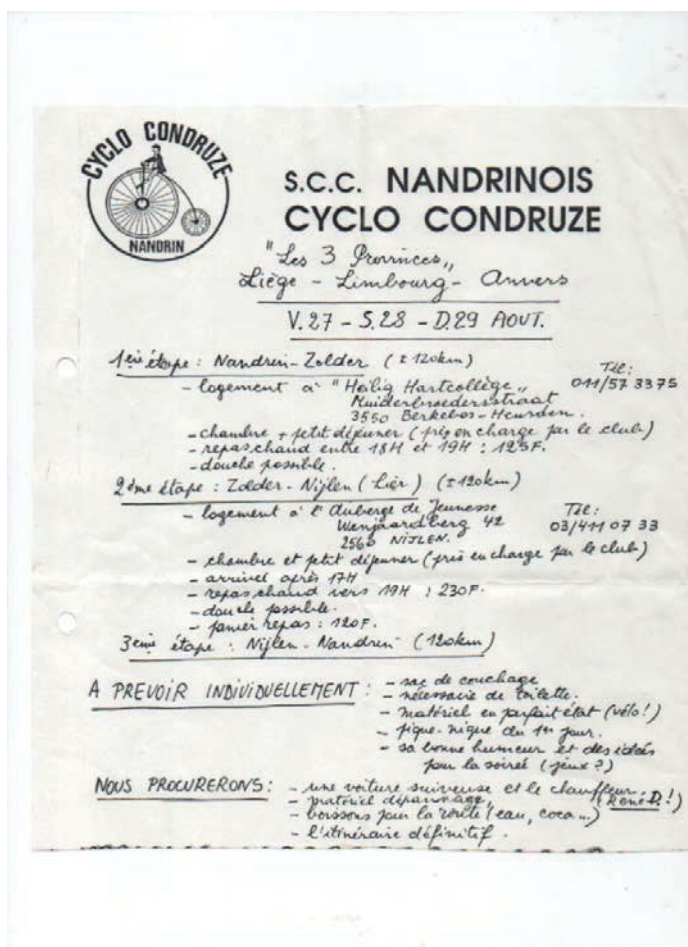 CYCLO CONDRUZE
NANDRIN
S.C.C. NANDRINOIS
CYCLO CONDRUZE
"Les 3 Provinces"
Liège - Limbourg - Anvers
V.27 - S.28 - D.29 AOUT.
1ère étape : Nandrin-Zolder (± 120km)
- logement à "Heilig Hartcollège" Tél: 011/57 33 75
Muiderbroedersstraat
3550 Berkebos-Heusden.
- chambre + petit déjeuner (pris en charge par le club)
- repas chaud entre 18H et 19H : 125F.
- douche possible.
2ème étape : Zolder-Nijlen (Lier) (±120km)
- logement à l'Auberge de Jeunesse Tél: 03/411 07 33
Wenjaardberg 42
2560 NIJLEN.
- chambre et petit déjeuner (pris en charge par le club)
- arrivée après 17H
- repas chaud vers 19H : 230F.
- douche possible.
- panier repas : 120F.
3ème étape : Nijlen-Nandrin (120km)
A PREVOIR INDIVIDUELLEMENT : - sac de couchage
- nécessaire de toilette.
- matériel en parfait état (vélo!)
- pique-nique du 1er jour.
- sa bonne humeur et des idées
pour la soirée (jeux?)
NOUS PROCURERONS : - une voiture suiveuse et le chauffeur. (René D.!)
- matériel dépannage,
- boissons pour la route (eau, coca...)
- l'itinéraire définitif.